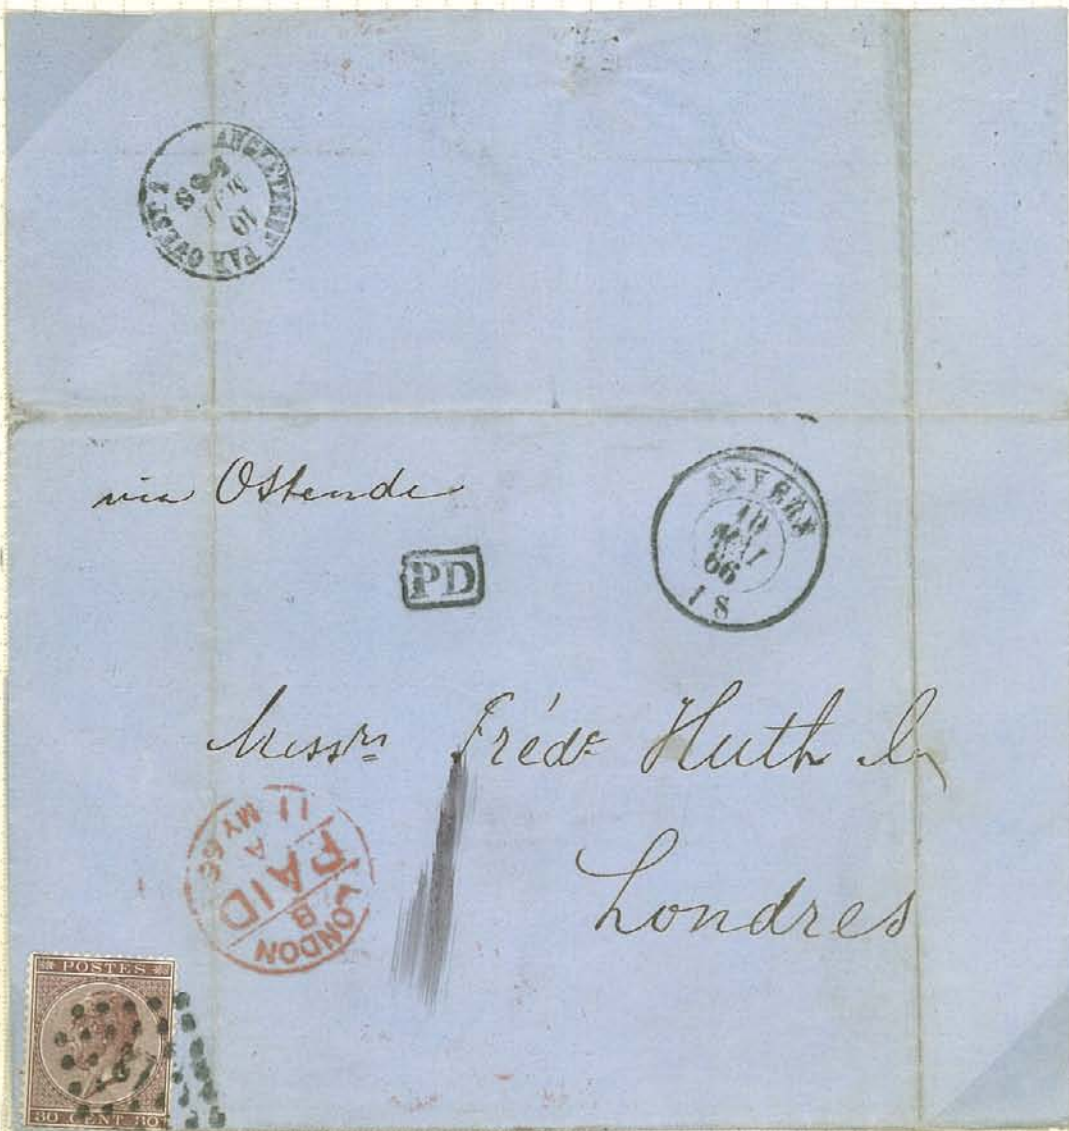 ANGLETERRE PAR OUEST
10
MAI
via Ostende
ANVERS
10
MAI
66
1 S
PD
Messrs Frédc Huth & Co
Londres
LONDON
B
PAID
A
11 MY 66
POSTES
30 CENT 30